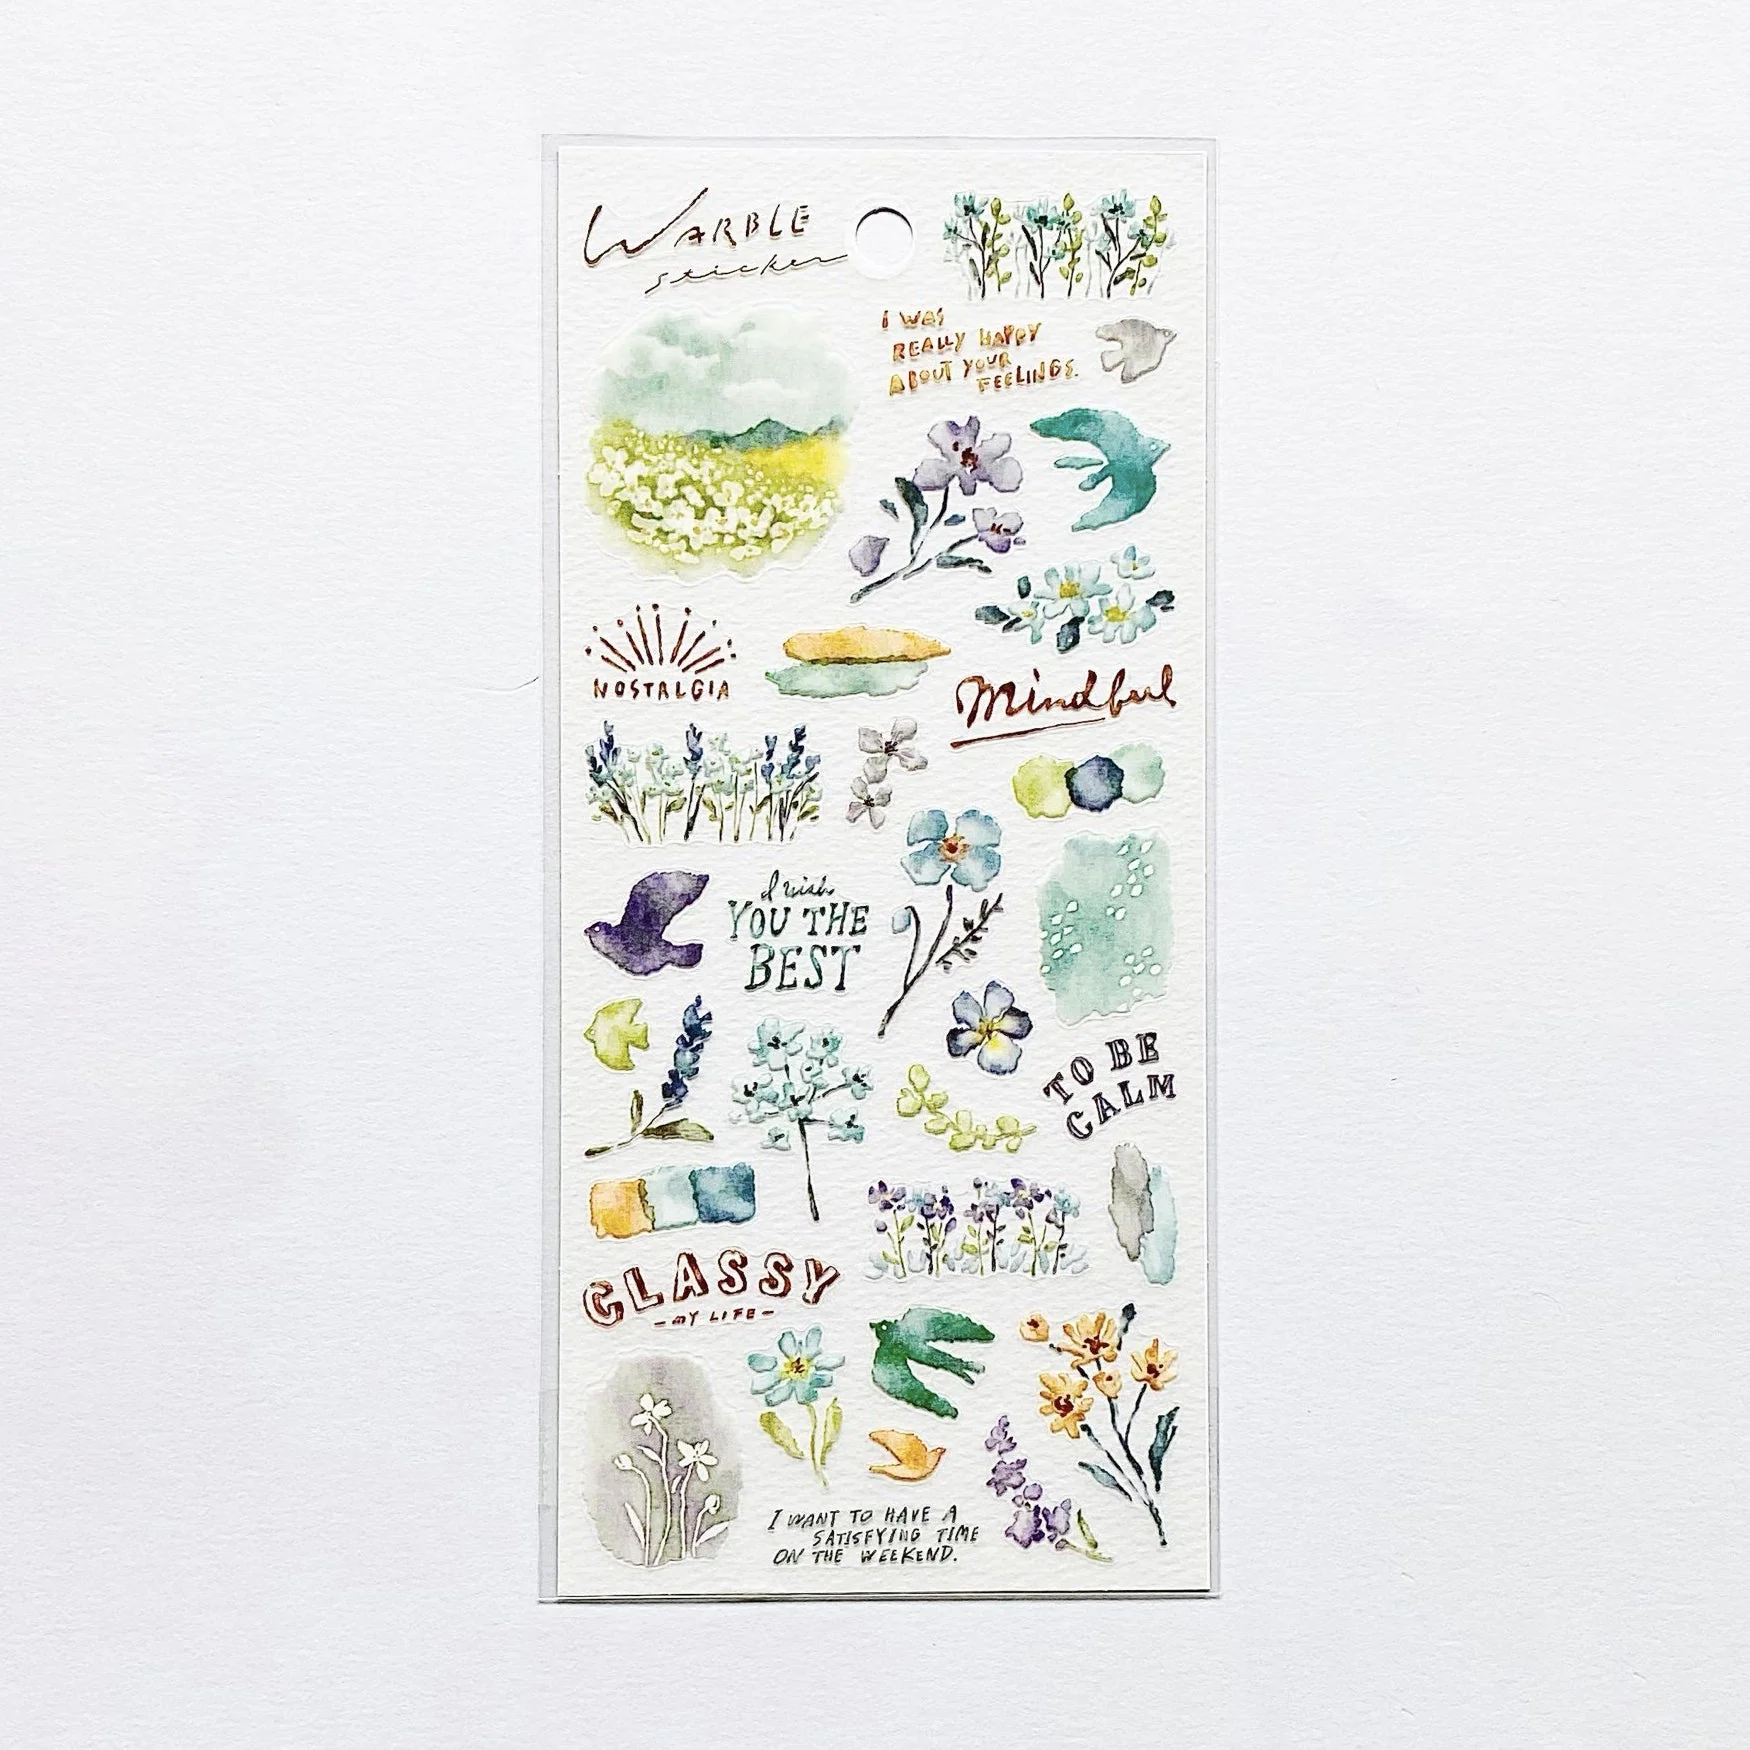 WARBLE
sticker
I WAS
REALLY HAPPY
ABOUT YOUR
FEELINGS.
NOSTALGIA
Mindful
I wish
YOU THE
BEST
TO BE
CALM
CLASSY
-MY LIFE-
I WANT TO HAVE A
SATISFYING TIME
ON THE WEEKEND.